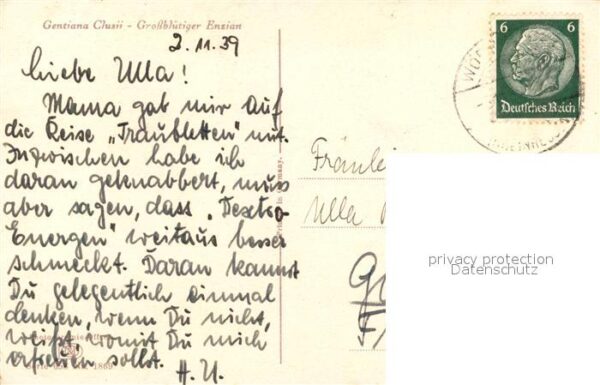 Gentiana Clusii - Großblütiger Enzian
2.11.39
Liebe Ulla!
Mama gab mir auf
die Reise „Traubletten" mit.
Inzwischen habe ich
daran geknabbert, muss
aber sagen, dass „Dextro-
Energen" weitaus besser
schmeckt. Daran kannst
Du gelegentlich einmal
denken, wenn Du nicht,
weißt, womit Du mich
erfreuen sollst.
H. U.
6 6
Deutsches Reich
Fräulei
Ulla
privacy protection
Datenschutz